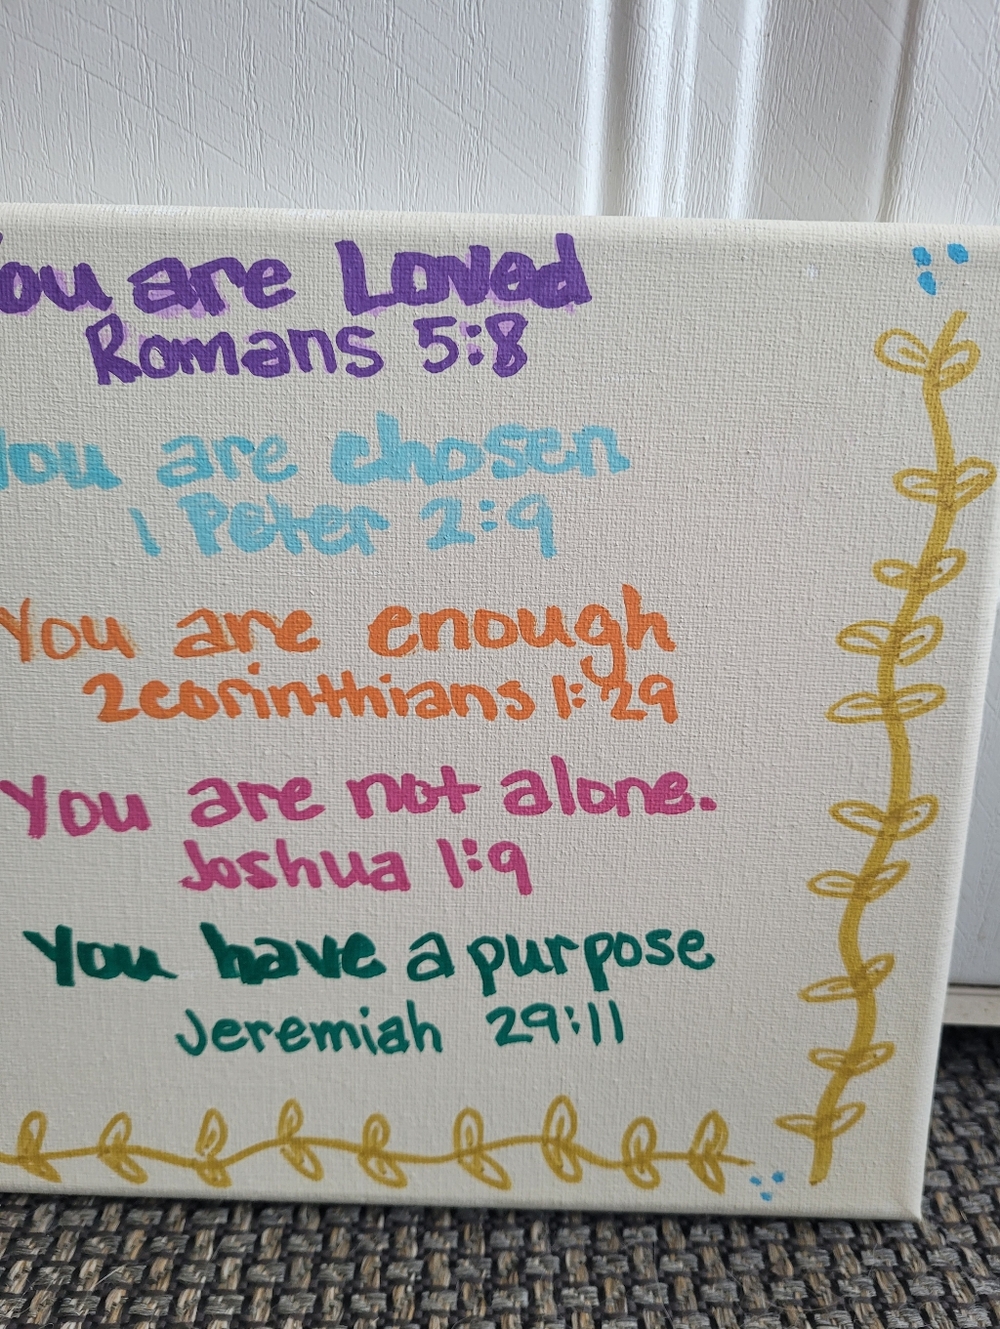 You are Loved
Romans 5:8
You are chosen
1 Peter 2:9
You are enough
2corinthians 1:29
You are not alone.
Joshua 1:9
You have a purpose
Jeremiah 29:11